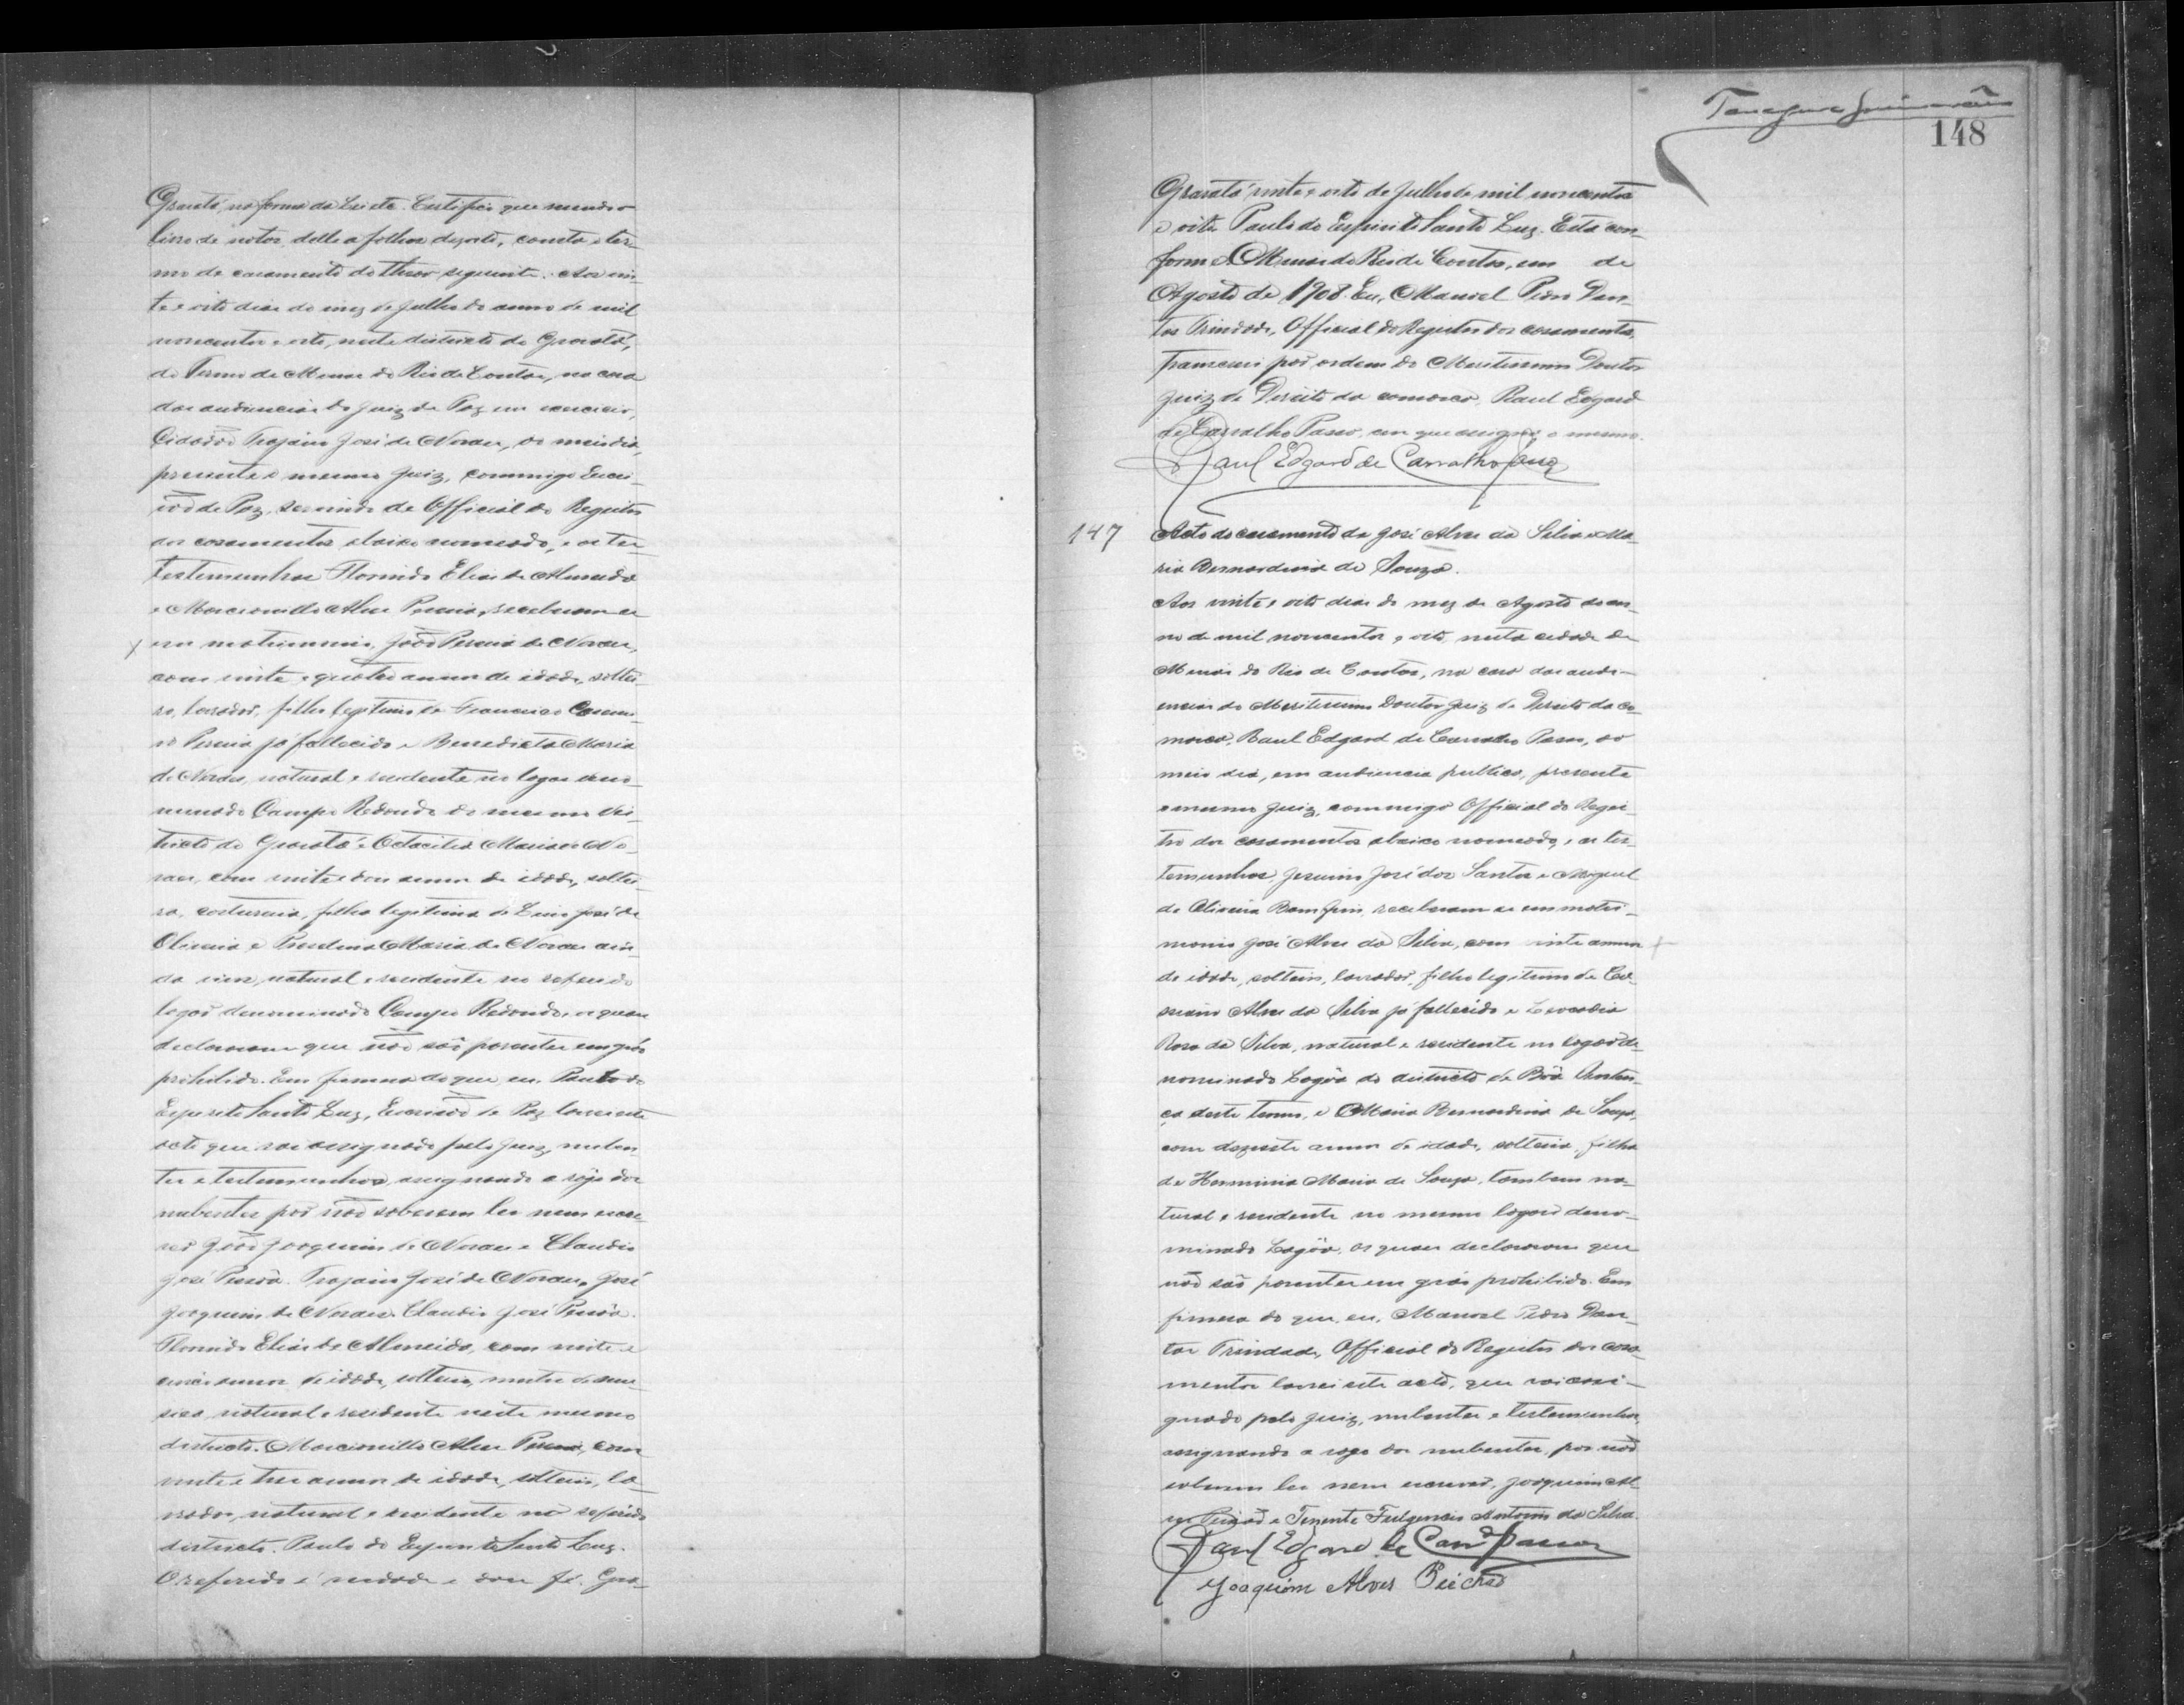 Gravatá, na forma da Lei etc. Certifico que revendo o
livro de notas, delle a folhas dezoito, consta o ter-
mo de casamento do theor seguinte: Aos vin-
te e oito dias do mez de Julho do anno de mil
novecentos e oito, neste districto de Gravatá,
do Termo de Minas do Rio de Contas, na casa
das audiencias do Juiz de Paz em exercicio,
Cidadão Trajano José de Novaes, ao meio dia,
presente o mesmo Juiz, commigo Escri-
vão de Paz, servindo de Official do Registro
dos casamentos abaixo nomeado, e as
testemunhas Florindo Elias de Almeida
e Marcionillo Alves Pereira, receberam-se
em matrimonio, João Pereira de Novaes,
com vinte e quatro annos de idade, soltei-
ro, lavrador, filho legitimo de Francisco
Pereira já fallecido e Benedicta Maria
de Novaes, natural e residente no logar deno-
minado Campo Redondo do mesmo dis-
tricto de Gravatá e Octacilia Maria de No-
vaes, com vinte e dous annos de idade, soltei-
ra, costureira, filha legitima de Luis José de
Oliveira e Maria de Novaes ain-
da vivos, natural e residente no referido
logar denominado Campo Redondo, os quaes
declararam que não são parentes em gráo
prohibido. Em firmeza do que eu, Paulo do
Espirito Santo Luz, Escrivão de Paz lavrei este
acto que vae assignado pelo Juiz, nuben-
tes e testemunhas, assignando a rogo dos
nubentes por não saberem ler nem escre-
ver João Joaquim de Novaes e Claudio
José Pessôa. Trajano José de Novaes, José
Joaquim de Novaes. Claudio José Pessôa.
Florindo Elias de Almeida, com vinte e
cinco annos de idade, solteiro, mestre de mu-
sica, natural e residente neste mesmo
districto. Marcionillo Alves Pereira, com
vinte e tres annos de idade, solteiro, la-
vrador, natural e residente no referido
districto. Paulo do Espirito Santo Luz.
O referido é verdade e dou fé. Gra-
148
Gravatá, vinte e oito de Julho de mil novecentos
e oito Paulo do Espirito Santo Luz. Está con-
forme. Minas do Rio de Contas, em de
Agosto de 1908. Eu, Manoel Pedro Dan-
tas Trindade, Official do Registro dos casamentos,
transcrevi por ordem do Meritissimo Doutor
Juiz de Direito da comarca, Raul Edgard
de Carvalho Passos, em que assigna o mesmo.
Raul Edgard de Carvalho Passos
147 Acto do casamento de José Alves da Silva e Ma-
ria Bernardina de Souza.
Aos vinte e oito dias do mez de Agosto do an-
no de mil novecentos e oito, nesta cidade de
Minas do Rio de Contas, na casa das audi-
encias do Meritissimo Doutor Juiz de Direito da co-
marca, Raul Edgard de Carvalho Passos, ao
meio dia, em audiencia publica, presente
o mesmo Juiz, commigo Official do Regis-
tro dos casamentos abaixo nomeado, e as tes-
temunhas, Jesuino José dos Santos e Miguel
de Oliveira Bomfim, receberam-se em matri-
monio José Alves da Silva, com vinte annos
de idade, solteiro, lavrador, filho legitimo de
Alves da Silva já fallecido e Leocadia
Rosa da Silva, natural e residente no logar de-
nominado Lagôa do districto de Bôa Senten-
ça deste termo, e Maria Bernardina de Souza,
com dezesete annos de idade, solteira, filha
de Herminia Maria de Souza, tambem na-
tural e residente no mesmo logar deno-
minado Lagôa, os quaes declararam que
não são parentes em gráo prohibido. Em
firmeza do que, eu, Manoel Pedro Dan-
tas Trindade, Official do Registro dos casa-
mentos lavrei este acto, que vai assi-
gnado pelo Juiz, nubentes e testemunhas,
assignando a rogo dos nubentes, por não
saberem ler nem escrever, Joaquim Al-
ves Peixôto e Tenente Fulgencio Antonio da Silva.
Raul Edgard de Carv. Passos
Joaquim Alves